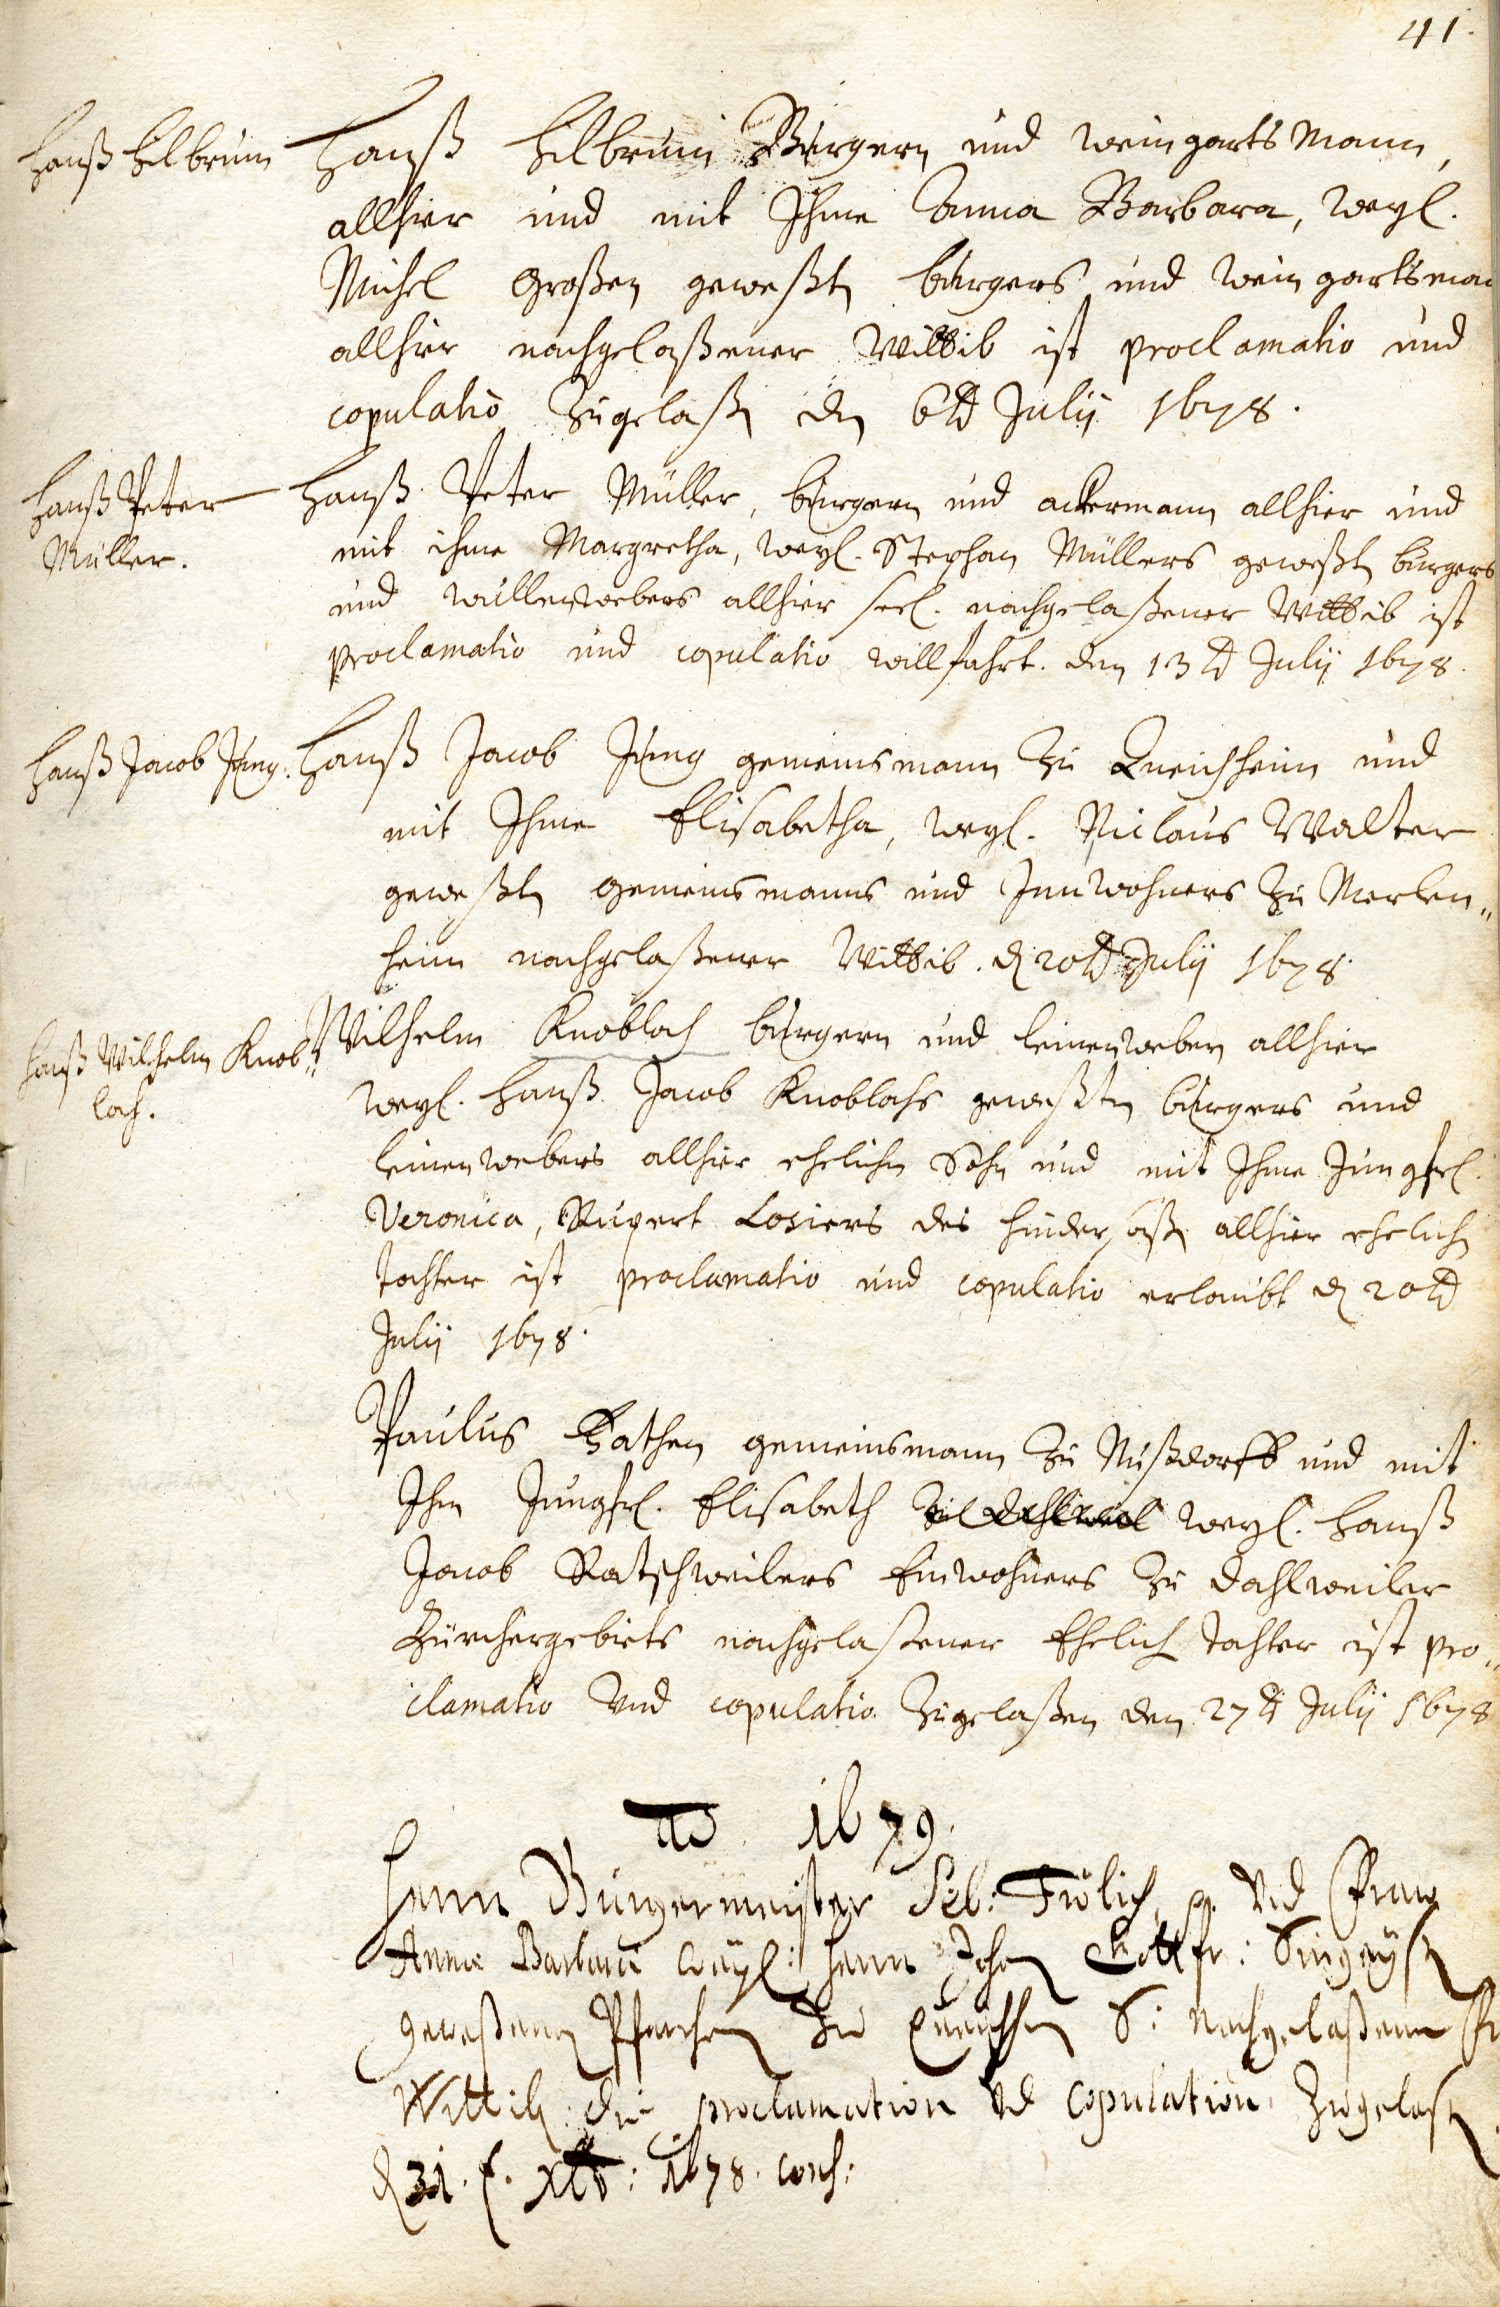 41.
Hanß Hilbrun
Hanß Hilbrun Burgern und weingartsMann,
allhier und mit Ihme Anna Barbara, weyl.
Michel Großen geweßte burgers und weingartsman
allhier nachgelaßener Wittib ist proclamatio und
copulatio zugelaßen den 6td Julii 1678.
Hanß Peter
Müller.
Hanß Peter Müller, burgern und ackermann allhier und
mit ihme Margretha, weyl. Stephan Müllers geweßten burgers
und wüllenwebers allhier seel. nachgelaßener Wittib ist
proclamatio und copulatio willfahrt. den 13td Julii 1678.
Hanß Jacob Jung.
Hanß Jacob Jung gemeinsmann zu Queichheim und
mit Ihme Elisabetha, weyl. Niclaus Walter
geweßten gemeinsmanns und Innwohners zu Merlen„
heim nachgelaßener Wittib. d 20td Julii 1678.
Hanß Wilhelm Knob„
loch.
Wilhelm Knobloch burgern und leinenweber allhier
weyl. Hanß Jacob Knoblochs geweßten burgers und
leinenwebers allhier ehelichen Sohn und mit Ihme Jungfrl.
Veronica, Rupert Losiers des hindersaßen allhier ehelich
tochter ist proclamatio und copulatio erlaubt d 20td
Julii 1678.
Paulus Bathen gemeinsmann zu Nußdorff und mit
Ihm Jungfrl. Elisabeth weyl. Hanß
Jacob Ratschweilers Einwohners zu dahlweiler
Zürchergebiets nachgelaßener Ehelich tochter ist pro„
clamatio Und copulatio zugelaßen den 27td Julii 1678
Ao 1679.
Herrn Burgermeister Seb: Frölich, Und Fraw
Anna Barbara weyl: Herrn Johan Gottfr:
geweßenen Pfarrhern zu Queichheim S: nachgelaßene Fr
Wittib: die proclamation Ud copulation zugelaßen
d 31. Xbr: 1678.